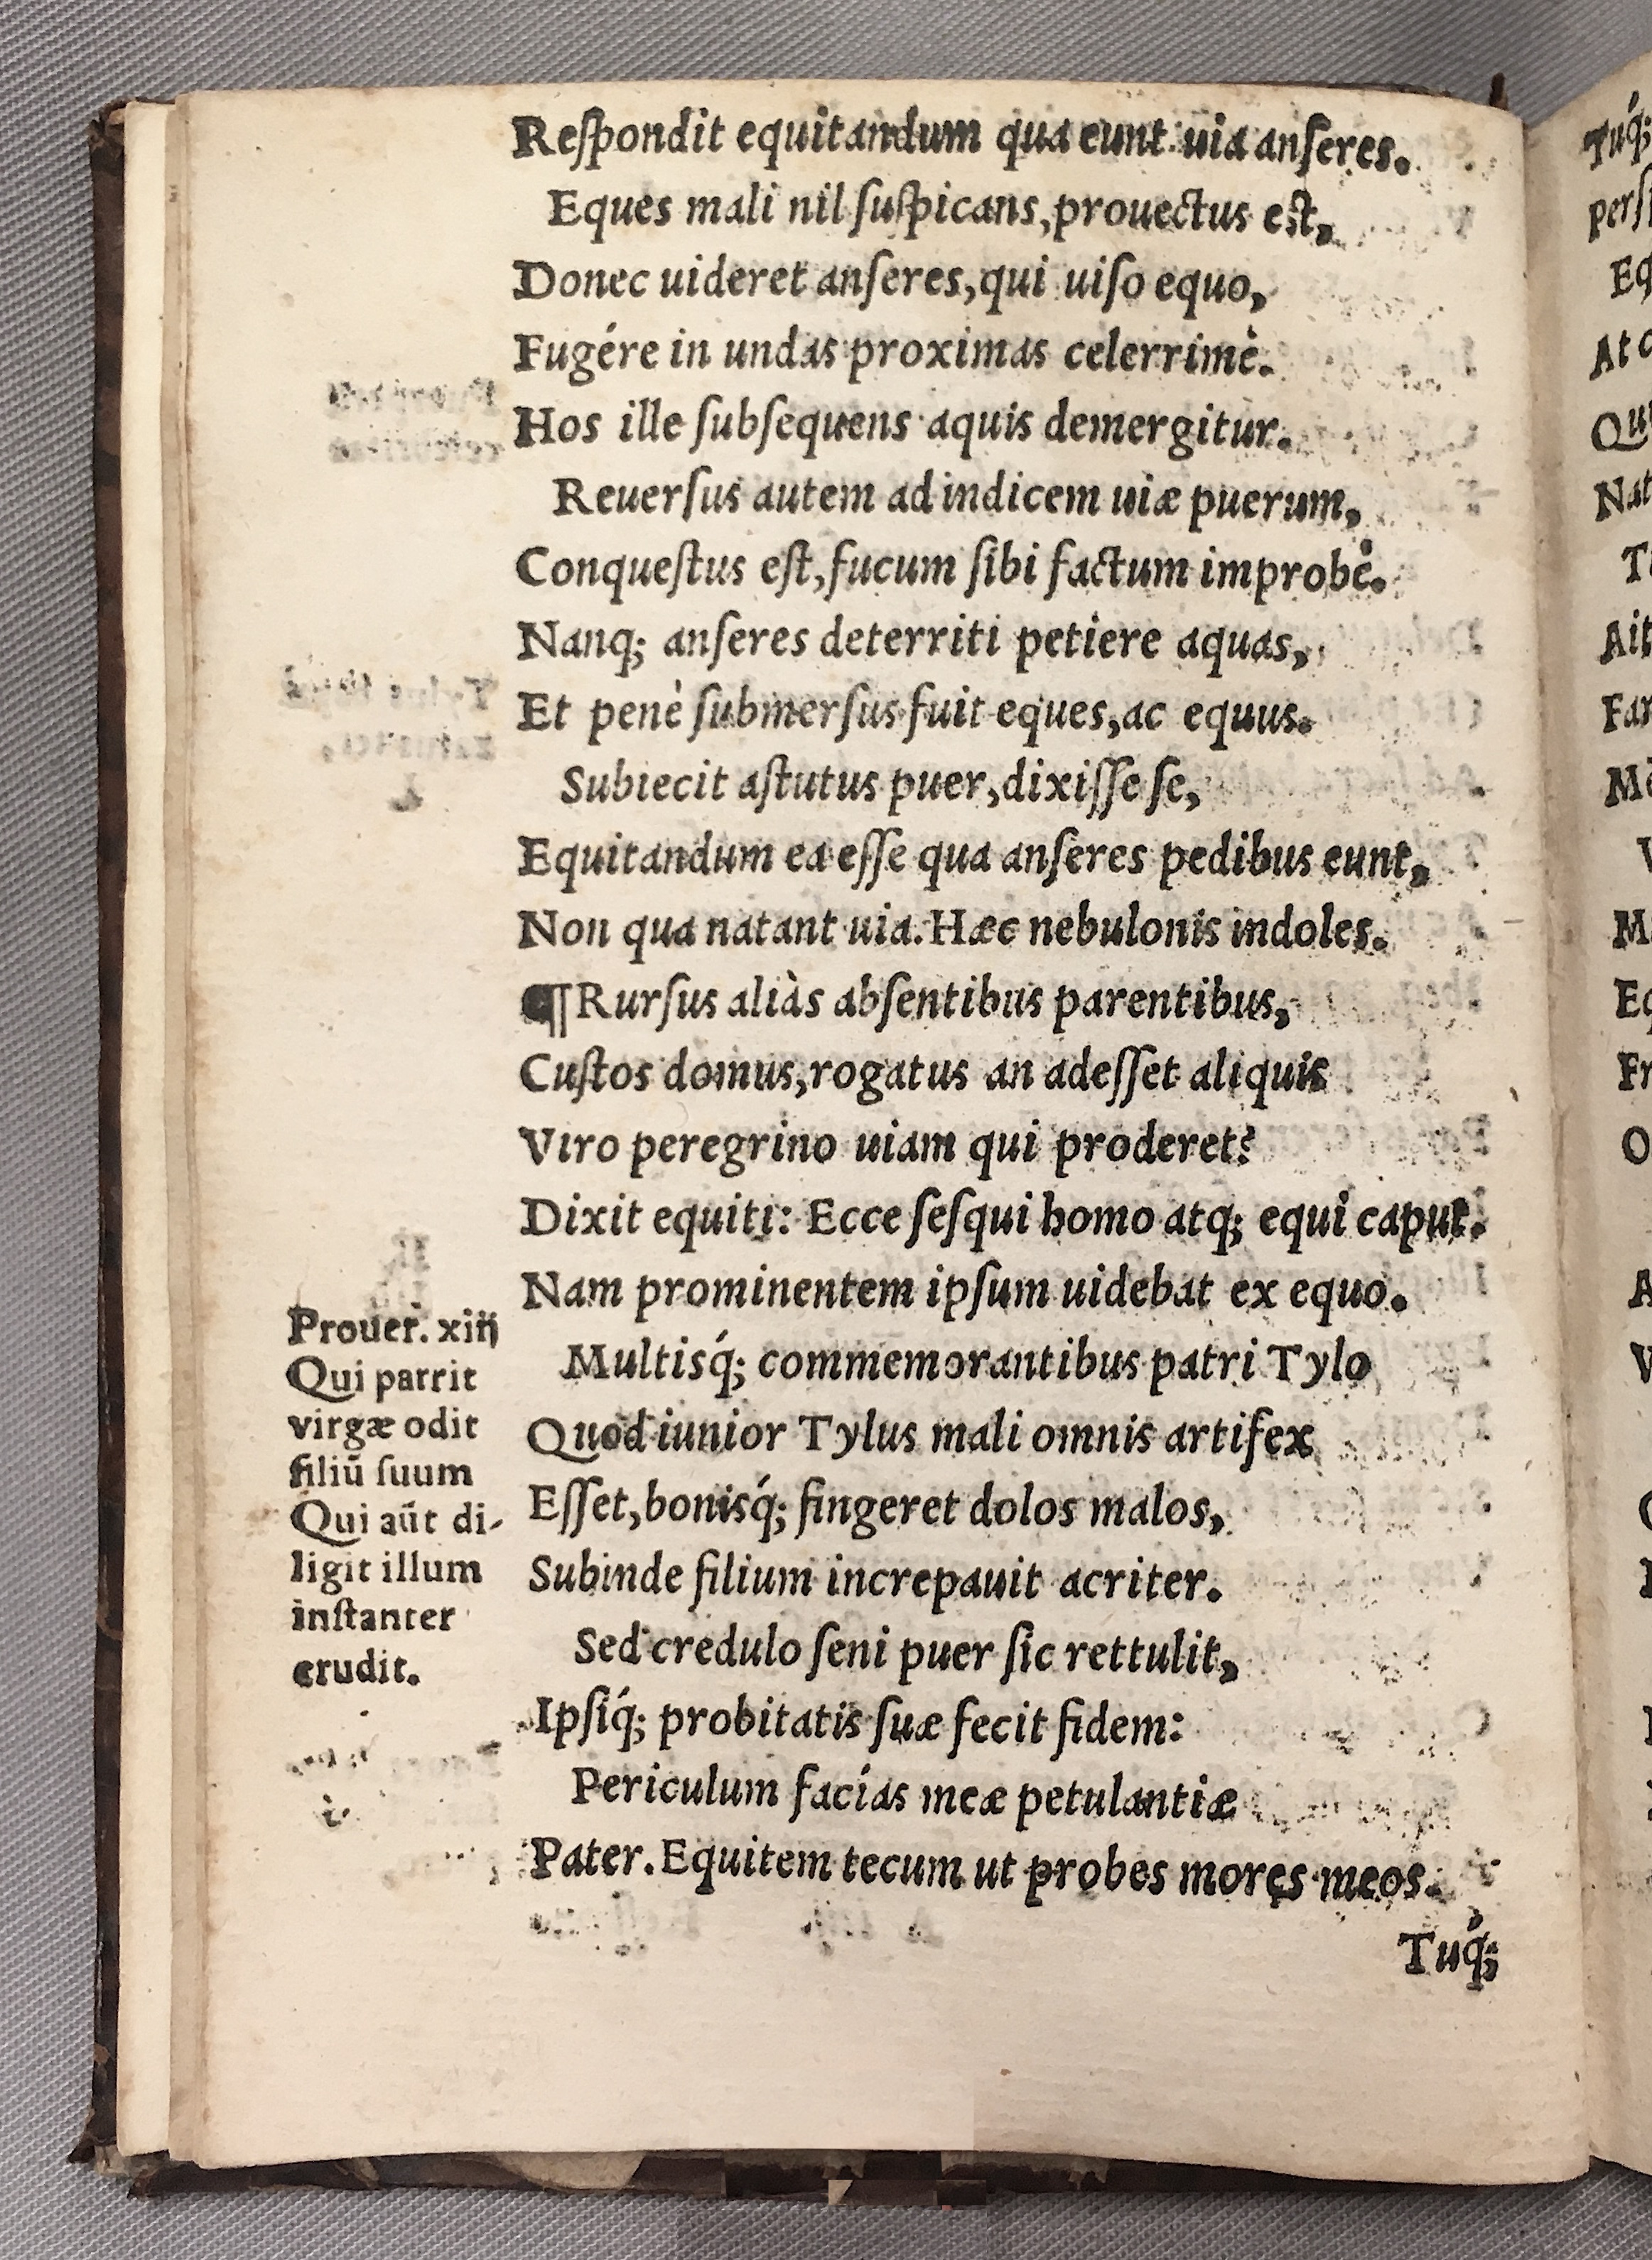 Reſpondit equitandum qua eunt uia anſeres.
Eques mali nil ſuſpicans, prouectus eſt,
Donec uideret anſeres, qui uiſo equo,
Fugére in undas proximas celerrimè.
Hos ille ſubſequens aquis demergitur.
Reuerſus autem ad indicem uiæ puerum,
Conqueſtus eſt, fucum ſibi factum improbè.
Nanq; anſeres deterriti petiere aquas,
Et penè ſubmerſus fuit eques, ac equus.
Subiecit aſtutus puer, dixiſſe ſe,
Equitandum ea eſſe qua anſeres pedibus eunt,
Non qua natant uia. Hæc nebulonis indoles.
¶ Rurſus aliàs abſentibus parentibus,
Cuſtos domus, rogatus an adeſſet aliquis
Viro peregrino uiam qui proderet?
Dixit equiti: Ecce ſeſqui homo atq; equi caput.
Nam prominentem ipſum uidebat ex equo.
Multisq́; commemorantibus patri Tylo
Quod iunior Tylus mali omnis artifex
Eſſet, bonisq́; fingeret dolos malos,
Subinde filium increpauit acriter.
Sed credulo ſeni puer ſic rettulit,
Ipſiq́; probitatis ſuæ fecit fidem:
Periculum facías meæ petulantiæ
Pater. Equitem tecum ut probes mores meos.
Tuq́;
Prouer. xiij
Qui parrit
virgæ odit
filiū ſuum
Qui aūt di-
ligit illum
inſtanter
erudit.
Tuq́;
perſ
Eq
At
Qu
Nat
T
Ait
Far
V
M
E
Fr
O
A
V